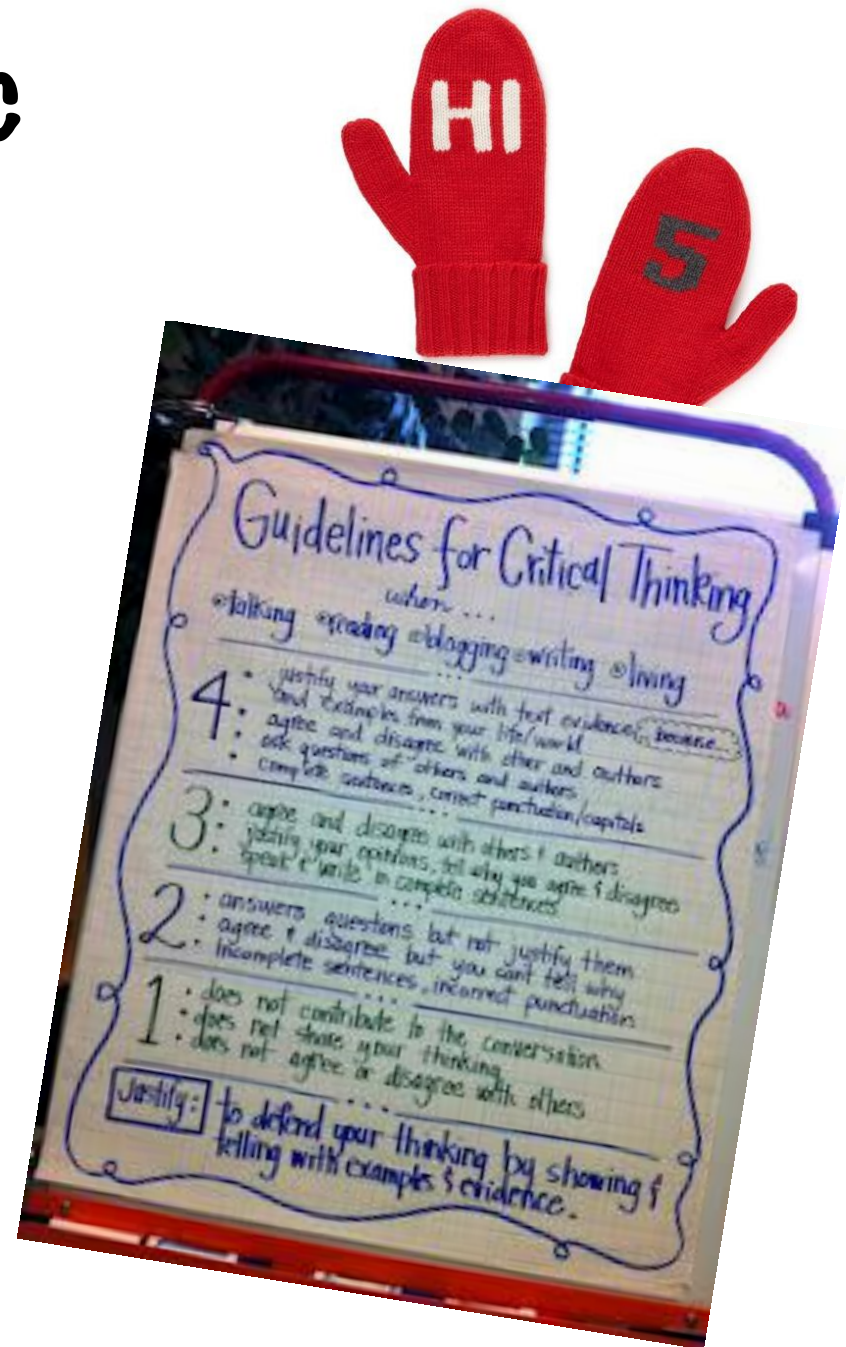 c
HI
5
Guidelines for Critical Thinking
when...
talking reading blogging writing living
4 • justify your answers with text evidence, because...
and examples from your life/world
• agree and disagree with other and authors
• ask questions of others and authors
• complete sentences, correct punctuation/capitals
3 • agree and disagree with others & authors
• justify your opinions, tell why you agree & disagree
• speak & write in complete sentences
2 • answers questions but not justify them
• agree & disagree but you cant tell why
• Incomplete sentences, incorrect punctuation
1 • does not contribute to the conversation
• does not share your thinking
• does not agree or disagree with others
Justify: to defend your thinking by showing &
telling with examples & evidence.